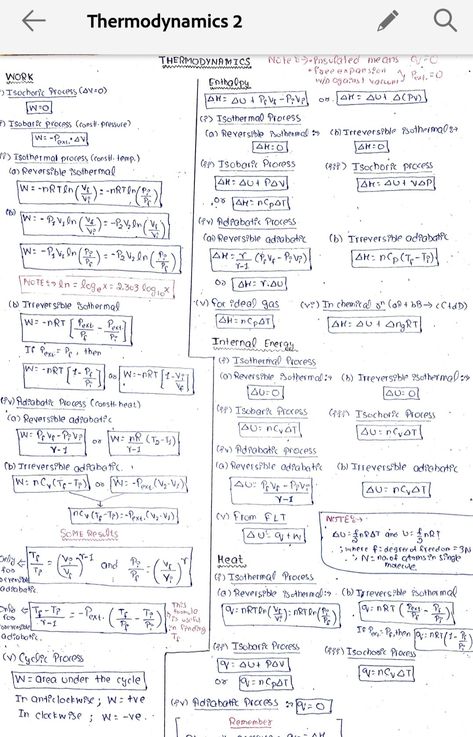 Thermodynamics 2
THERMODYNAMICS
Note :→ • Insulated means q=0
• free expansion
w/o against vacuum } Pext.=0
WORK
(i) Isochoric Process (ΔV=0)
W=0
(ii) Isobaric process (constt. pressure)
W=-Pext.ΔV
(iii) Isothermal process (constt. temp.)
(a) Reversible isothermal
W=-nRT ln(Vf/Vi)=-nRT ln(Pi/Pf)
(b)
W=-PiVi ln(Vf/Vi)=-PiVi ln(Vf/Vi)
W=-PiVi ln(Pi/Pf)=-PiVi ln(Pi/Pf)
NOTE:→ ln = logex = 2.303 log10x
(b) Irreversible isothermal
W=-nRT[Pext/Pf - Pext/Pi]
If Pext=Pf, then
W=-nRT[1-Pf/Pi] or W=-nRT[1-Vi/Vf]
(iv) Adiabatic Process (constt. heat)
(a) Reversible adiabatic
W=PfVf-PiVi/γ-1 or W=nR/γ-1 (T2-T1)
(b) Irreversible adiabatic.
W=nCv(Tf-Ti) or W=-Pext.(V2-V1)
nCv(Tf-Ti)=-Pext.(V2-V1)
SOME Results
Only for reversible adiabatic.
Tf/Ti=(Vi/Vf)^γ-1 and Pi/Pf=(Vf/Vi)^γ
Only for irreversible adiabatic.
Tf-Ti/γ-1=-Pext.(Tf/Pf-Ti/Pi)
This formula is useful in finding Tf
(v) Cyclic Process
W=area under the cycle
In anticlockwise; W=+ve
In clockwise; W=-ve.
Enthalpy
ΔH=ΔU+PfVf-PiVi or ΔH=ΔU+Δ(PV)
(i) Isothermal Process
(a) Reversible isothermal:→ (b) Irreversible isothermal:→
ΔH=0 ΔH=0
(ii) Isobaric Process (iii) Isochoric process
ΔH=ΔU+PΔV ΔH=ΔU+VΔP
or ΔH=nCpΔT
(iv) Adiabatic Process
(a) Reversible adiabatic (b) Irreversible adiabatic
ΔH=γ/γ-1 (PfVf-PiVi) ΔH=nCp(Tf-Ti)
or ΔH=γ.ΔU
(v) For ideal gas (vi) In chemical rxn (aA+bB→cC+dD)
ΔH=nCpΔT ΔH=ΔU+ΔngRT
Internal Energy
(i) Isothermal Process
(a) Reversible isothermal:→ (b) Irreversible isothermal:→
ΔU=0 ΔU=0
(ii) Isobaric Process (iii) Isochoric Process
ΔU=nCvΔT ΔU=nCvΔT
(iv) Adiabatic process
(a) Reversible adiabatic (b) Irreversible adiabatic
ΔU=PfVf-PiVi/γ-1 ΔU=nCvΔT
(v) From FLT
ΔU=q+w
NOTE:→
ΔU=f/2nRΔT and U=f/2nRT
; where f: degree of freedom=3N
; N=no. of atoms in single molecule.
Heat
(i) Isothermal Process
(a) Reversible isothermal:→ (b) Irreversible isothermal
q=nRT ln(Vf/Vi)=nRT ln(Pi/Pf) q=nRT(Pext/Pf-Pext/Pi)
If Pext=Pf, then q=nRT(1-Pf/Pi)
(ii) Isobaric Process (iii) Isochoric Process
q=ΔU+PΔV q=nCvΔT
or q=nCpΔT
(iv) Adiabatic Process:→ q=0
Remember